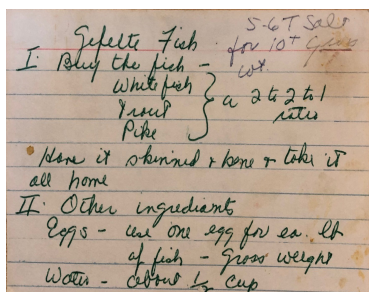 Gefelte Fish
5-6 T Salt
for 10# Gross
wt.
I. Buy the fish -
Whitefish
Trout
Pike
a 2 to 2 to 1
ratio
Have it skinned & bone & take it
all home
II. Other ingredients
Eggs - use one egg for ea. lb
of fish - Gross weight
Water - about 1/2 cup